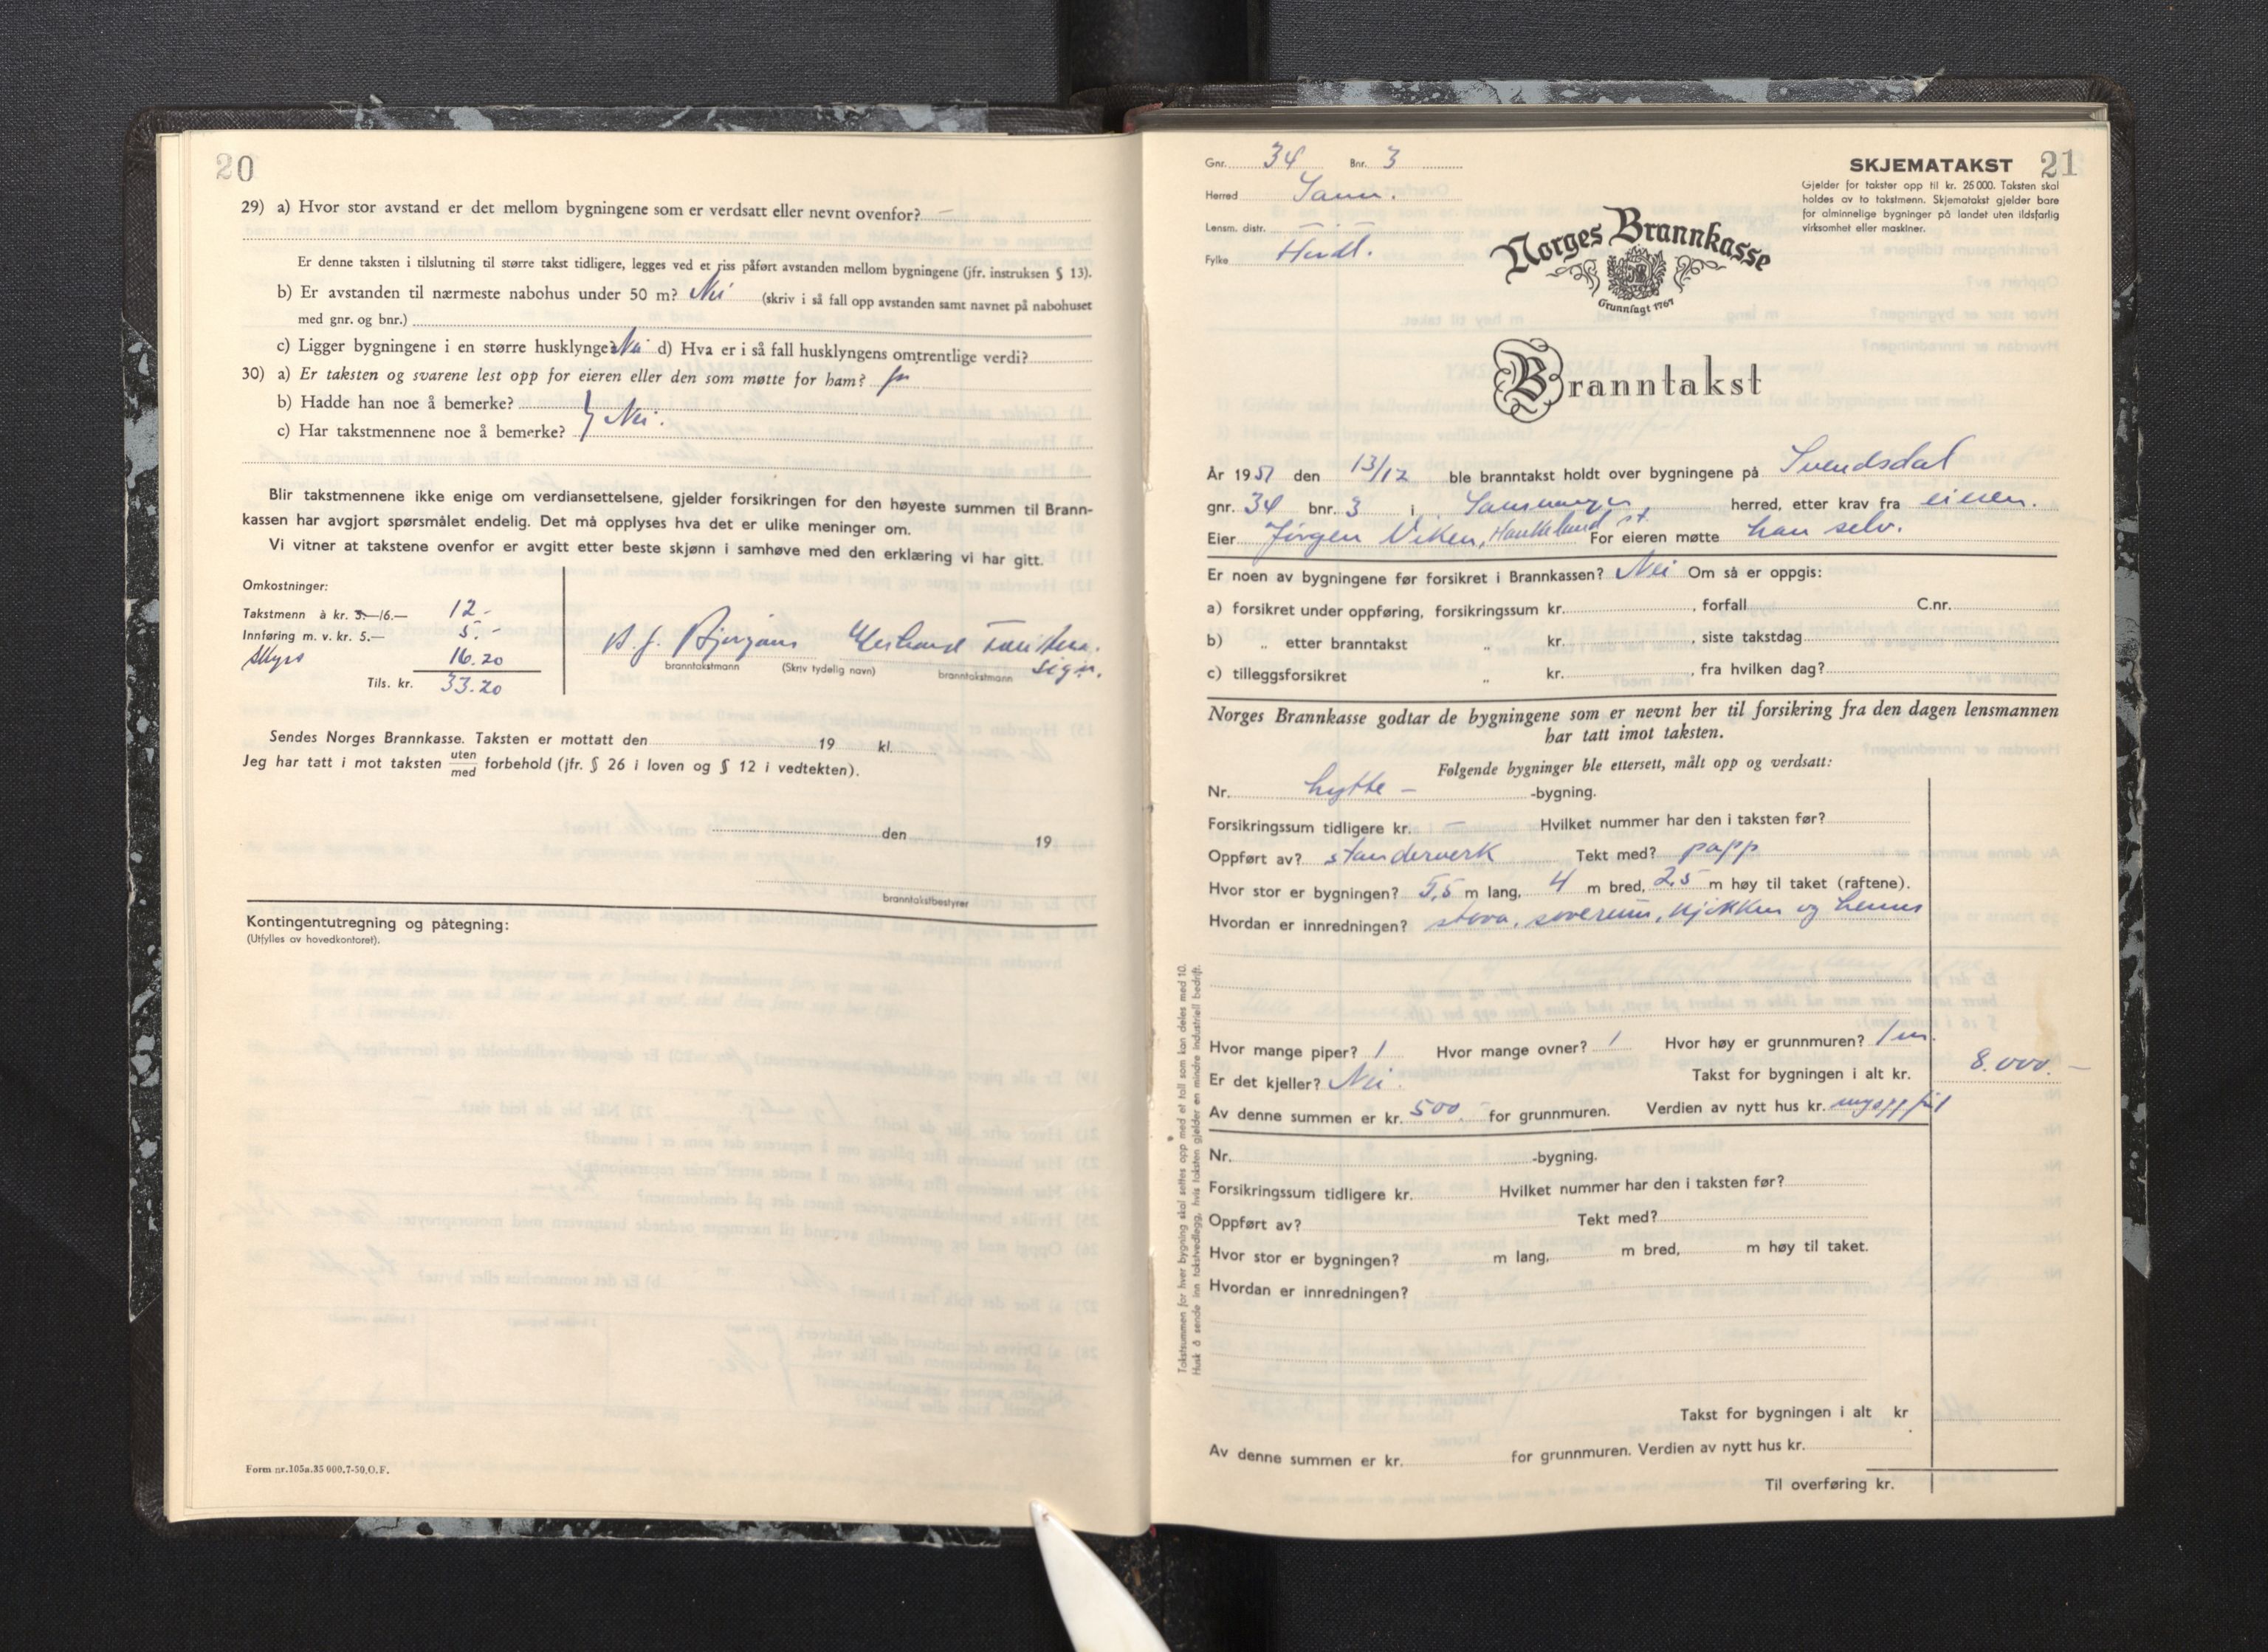 20
29) a) Hvor stor avstand er det mellom bygningene som er verdsatt eller nevnt ovenfor? —
Er denne taksten i tilslutning til større takst tidligere, legges ved et riss påført avstanden mellom bygningene (jfr. instruksen § 13).
b) Er avstanden til nærmeste nabohus under 50 m? Nei (skriv i så fall opp avstanden samt navnet på nabohuset
med gnr. og bnr.)
c) Ligger bygningene i en større husklynge? Nei d) Hva er i så fall husklyngens omtrentlige verdi?
30) a) Er taksten og svarene lest opp for eieren eller den som møtte for ham? ja
b) Hadde han noe å bemerke?
c) Har takstmennene noe å bemerke? } Nei.
Blir takstmennene ikke enige om verdiansettelsene, gjelder forsikringen for den høyeste summen til Brann-
kassen har avgjort spørsmålet endelig. Det må opplyses hva det er ulike meninger om.
Vi vitner at takstene ovenfor er avgitt etter beste skjønn i samhøve med den erklæring vi har gitt.
Omkostninger:
Takstmenn à kr. 3.—/6.— 12.-
Innføring m. v. kr. 5.— 5.-
Skyss 16.20
Tils. kr. 33.20
branntakstmann (Skriv tydelig navn) branntakstmann sign.
Sendes Norges Brannkasse. Taksten er mottatt den 19 kl.
Jeg har tatt i mot taksten uten/med forbehold (jfr. § 26 i loven og § 12 i vedtekten).
den 19
branntakstbestyrer
Kontingentutregning og påtegning:
(Utfylles av hovedkontoret).
Form nr.105a.35 000.7-50.O.F.
Gnr. 34 Bnr. 3
Herred Samn.
Lensm. distr.
Fylke Hordl.
SKJEMATAKST 21
Gjelder for takster opp til kr. 25 000. Taksten skal
holdes av to takstmenn. Skjematakst gjelder bare
for alminnelige bygninger på landet uten ildsfarlig
virksomhet eller maskiner.
Norges Brannkasse
Grunnlagt 1767
Branntakst
År 1951 den 13/12 ble branntakst holdt over bygningene på Svendsdal
gnr. 34 bnr. 3 i Samnanger herred, etter krav fra eieren.
Eier Jørgen Viken, Haukeland st. For eieren møtte han selv.
Er noen av bygningene før forsikret i Brannkassen? Nei Om så er oppgis:
a) forsikret under oppføring, forsikringssum kr. , forfall C.nr.
b) „ etter branntakst „ kr. , siste takstdag
c) tilleggsforsikret „ kr. , fra hvilken dag?
Norges Brannkasse godtar de bygningene som er nevnt her til forsikring fra den dagen lensmannen
har tatt imot taksten.
Følgende bygninger ble ettersett, målt opp og verdsatt:
Nr. hytte — -bygning.
Forsikringssum tidligere kr. — Hvilket nummer har den i taksten før?
Oppført av? standerverk Tekt med? papp
Hvor stor er bygningen? 5,5 m lang, 4 m bred, 2,5 m høy til taket (raftene).
Hvordan er innredningen? stova, soverum, kjøkken og hems
Hvor mange piper? 1 Hvor mange ovner? 1 Hvor høy er grunnmuren? 1 m.
Er det kjeller? Nei. Takst for bygningen i alt kr. 8.000.—
Av denne summen er kr. 500.- for grunnmuren. Verdien av nytt hus kr. nyoppført
Nr. -bygning.
Forsikringssum tidligere kr. Hvilket nummer har den i taksten før?
Oppført av? Tekt med?
Hvor stor er bygningen? m lang, m bred, m høy til taket.
Hvordan er innredningen?
Takst for bygningen i alt kr
Av denne summen er kr. for grunnmuren. Verdien av nytt hus kr.
Til overføring kr.
Takstsummen for hver bygning skal settes opp med et tall som kan deles med 10.
Husk å sende inn takstvedlegg, hvis taksten gjelder en mindre industriell bedrift.